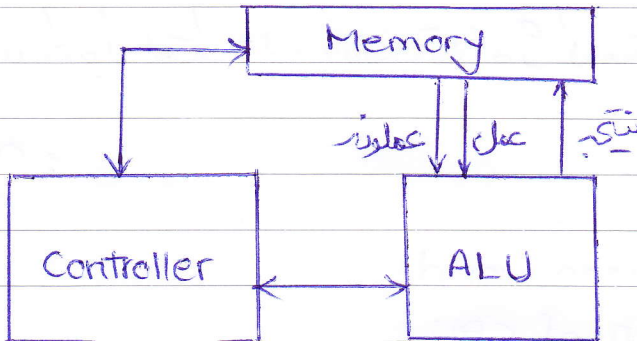 Memory
عملوند عمل نتیجه
Controller
ALU